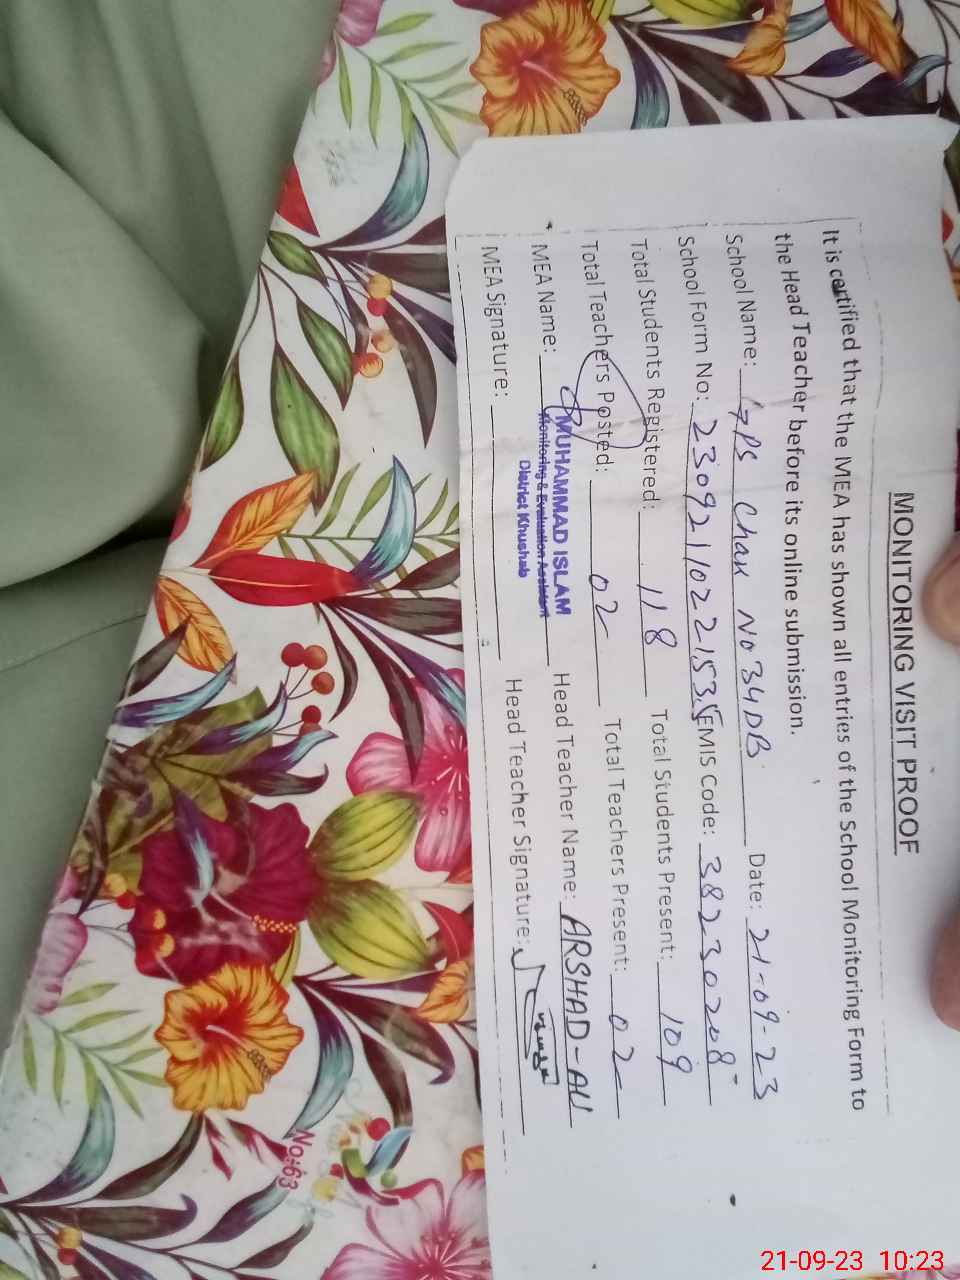 MONITORING VISIT PROOF
It is certified that the MEA has shown all entries of the School Monitoring Form to
the Head Teacher before its online submission.
School Name: GPS Chak No 34DB Date: 21-09-23
School Form No: EMIS Code: 38230208
Total Students Registered: 118 Total Students Present: 109
Total Teachers Posted: 02 Total Teachers Present: 02
MEA Name: MUHAMMAD ISLAM Head Teacher Name: ARSHAD-ALI
Monitoring & Evaluation Assistant
District Khushab
MEA Signature: Head Teacher Signature:
No:63
21-09-23 10:23